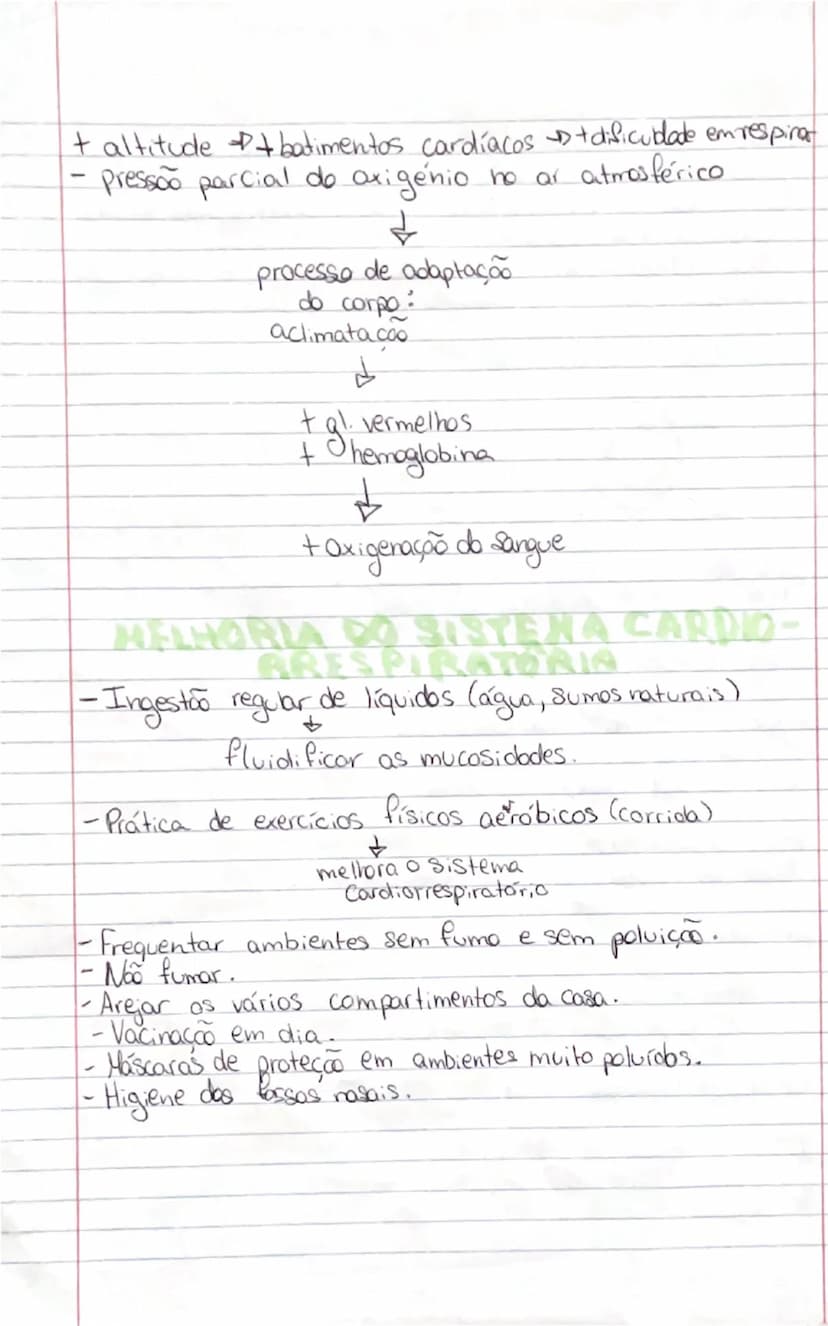 + altitude → + batimentos cardíacos → + dificuldade em respirar
- pressão parcial do oxigénio no ar atmosférico
↓
processo de adaptação
do corpo:
aclimatação
↓
+ gl. vermelhos
+ hemoglobina
↓
+ oxigenação do sangue
MELHORIA DO SISTEMA CARDIO-
RRESPIRATÓRIA
- Ingestão regular de líquidos (água, sumos naturais)
↓
fluidificar as mucosidades.
- Prática de exercícios físicos aeróbicos (corrida)
↓
melhora o sistema
cardiorrespiratório
- Frequentar ambientes sem fumo e sem poluição.
- Não fumar.
- Arejar os vários compartimentos da casa.
- Vacinação em dia.
- Máscaras de proteção em ambientes muito poluídos.
- Higiene das fossas nasais.